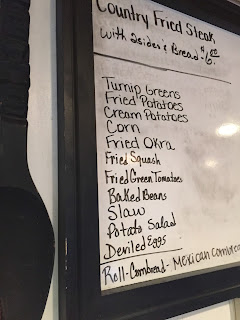 Country Fried Steak
with 2 sides & Bread - $6.00
Turnip Greens
Fried Potatoes
Cream Potatoes
Corn
Fried Okra
Fried Squash
Fried Green Tomatoes
Baked Beans
Slaw
Potato Salad
Deviled Eggs
Roll - Cornbread - Mexican Cornbrea